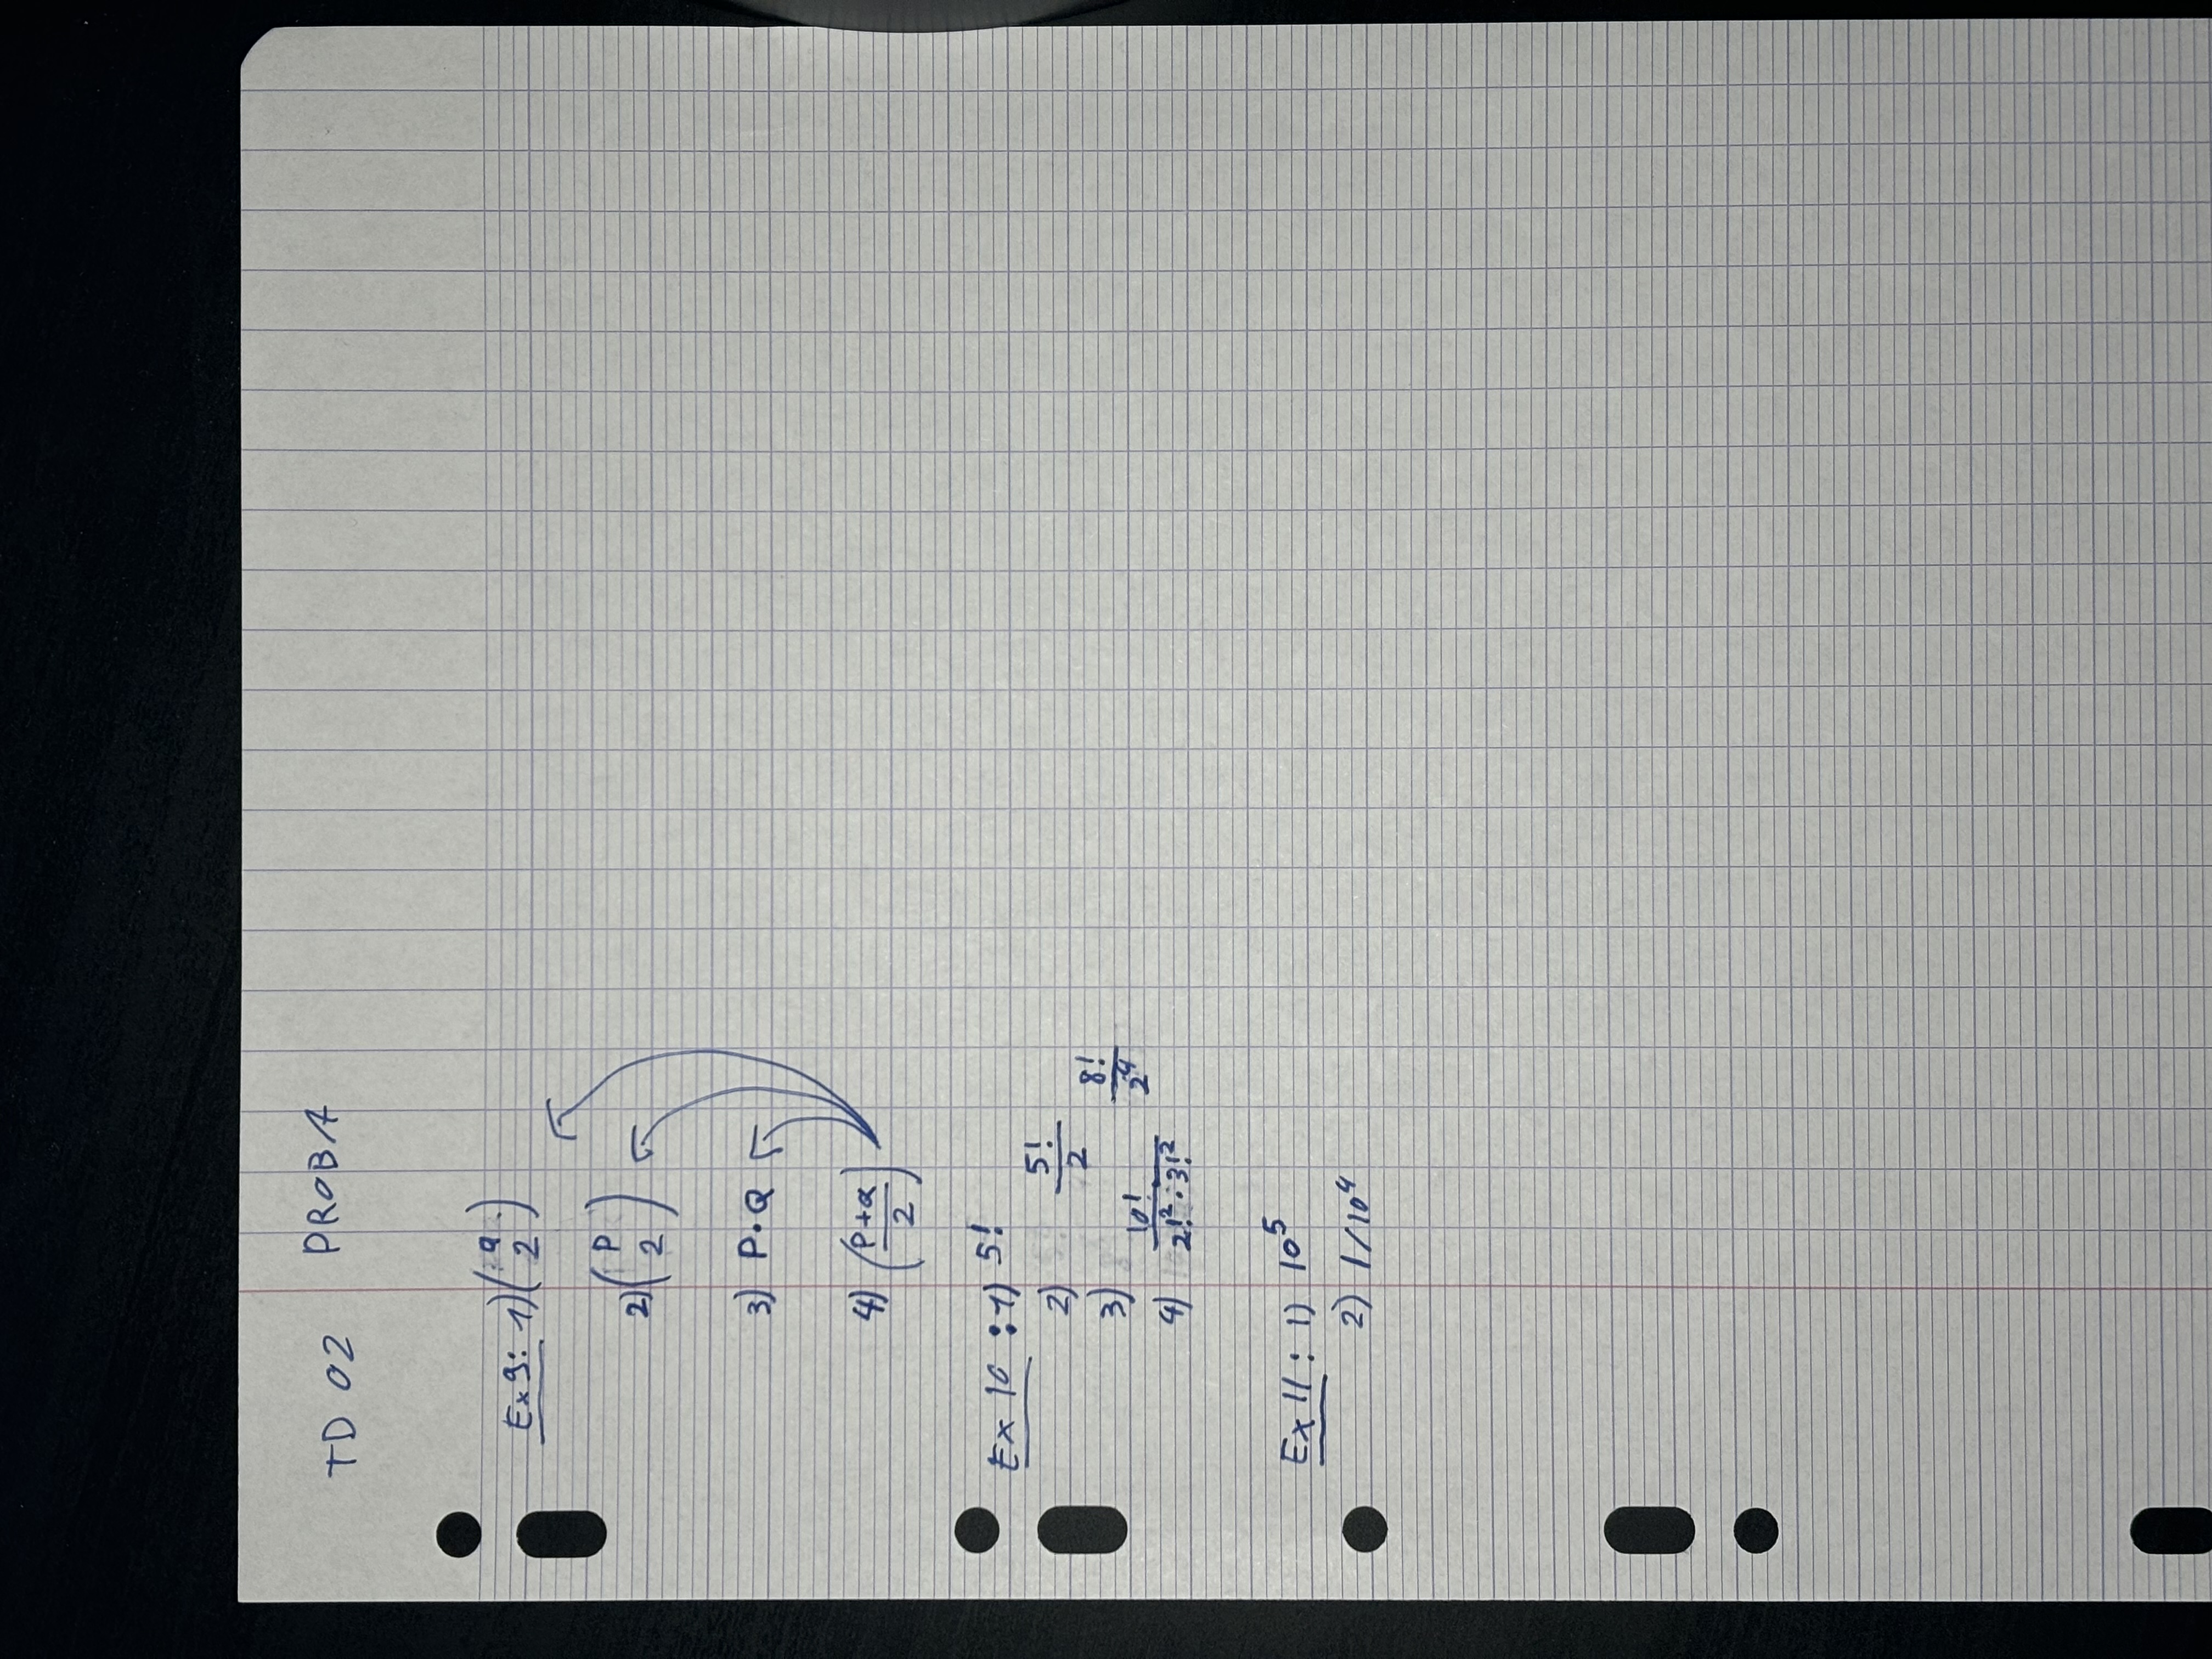 TD 02 PROBA
Ex 9: 1) (q 2)
2) (P 2)
3) P·Q
4) (P+Q / 2)
Ex 10 : 1) 5!
2) 5!/2
3) 8!/2⁴
4) 10!/2!²·3!²
Ex 11 : 1) 10⁵
2) 1/10⁴